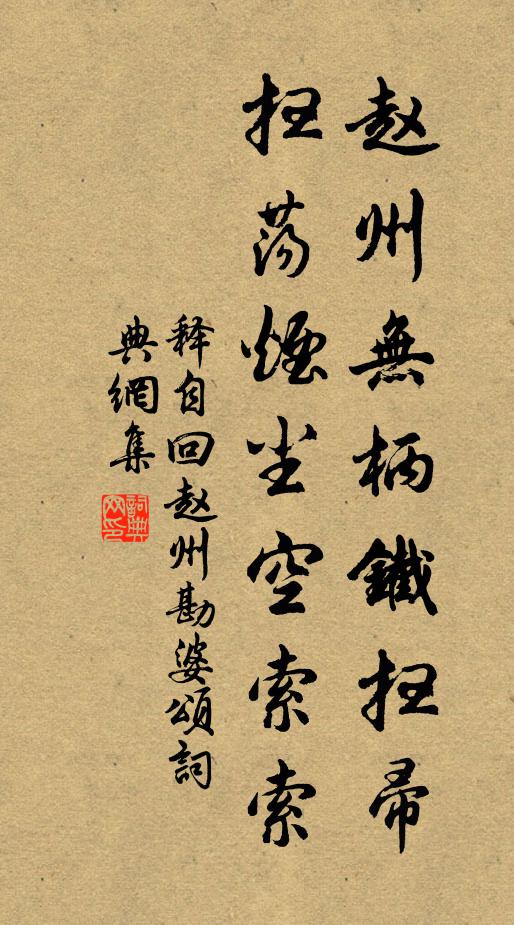 赵州無柄鐵扫帚
扫荡煙尘空索索
释自回赵州勘婆頌詞
典網集
詞典
网印